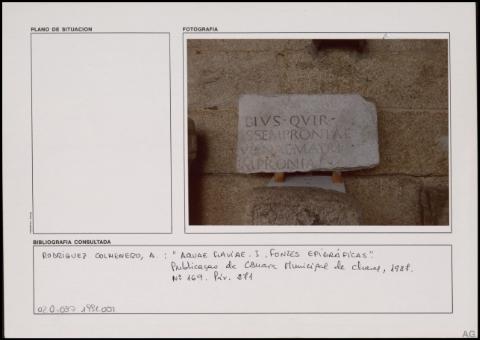 PLANO DE SITUACION
FOTOGRAFIA
BIVS·QVIR·
SSEMPRONIAE
MPRONIA
BIBLIOGRAFIA CONSULTADA
RODRIGUEZ COLMENERO, A. : "AQUAE FLAVIAE. I. FONTES EPIGRÁFICAS".
Publicaçao da Câmara Municipal de Chaves, 1987.
Nº 169. Páx. 271
AG